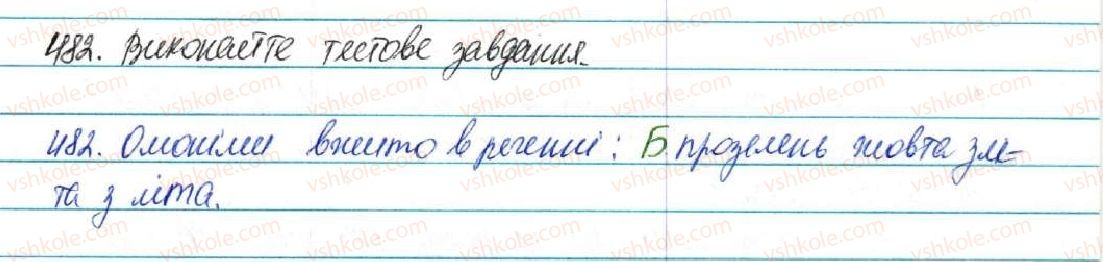 482. Виконайте тестове завдання.
482. Омоніми вжито в реченні: Б прозелень жовта злі-
та з літа.